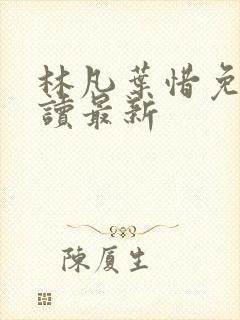 林凡葉惜免
讀最新
陳厦生